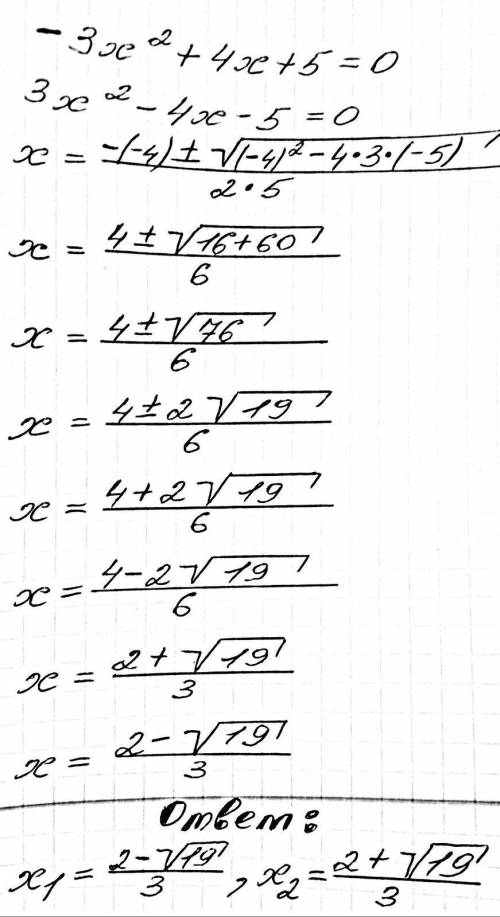 -3x² + 4x + 5 = 0
3x² - 4x - 5 = 0
x = (-(-4) ± √((-4)² - 4·3·(-5))) / (2·5)
x = (4 ± √(16 + 60)) / 6
x = (4 ± √76) / 6
x = (4 ± 2√19) / 6
x = (4 + 2√19) / 6
x = (4 - 2√19) / 6
x = (2 + √19) / 3
x = (2 - √19) / 3
Ответ:
x₁ = (2 - √19) / 3 , x₂ = (2 + √19) / 3